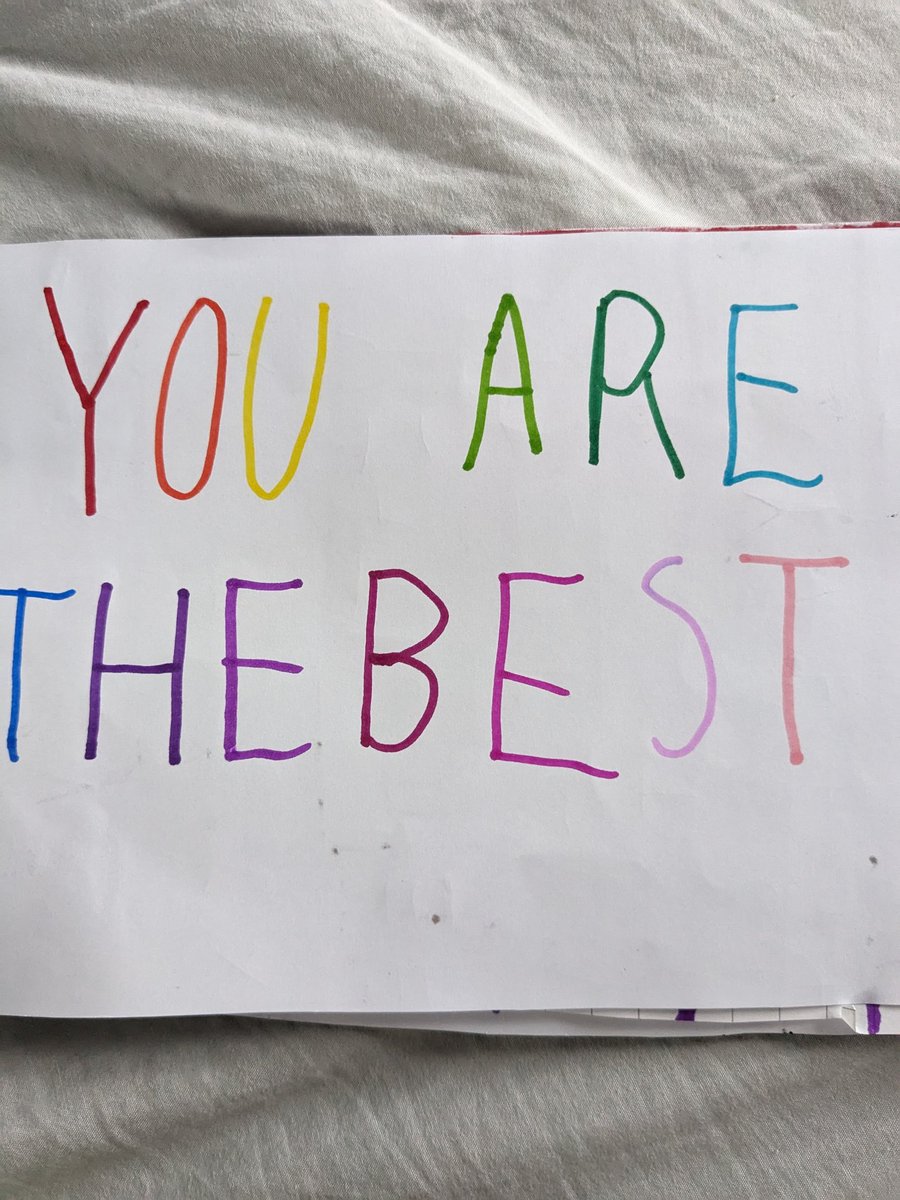 YOU ARE
THE BEST